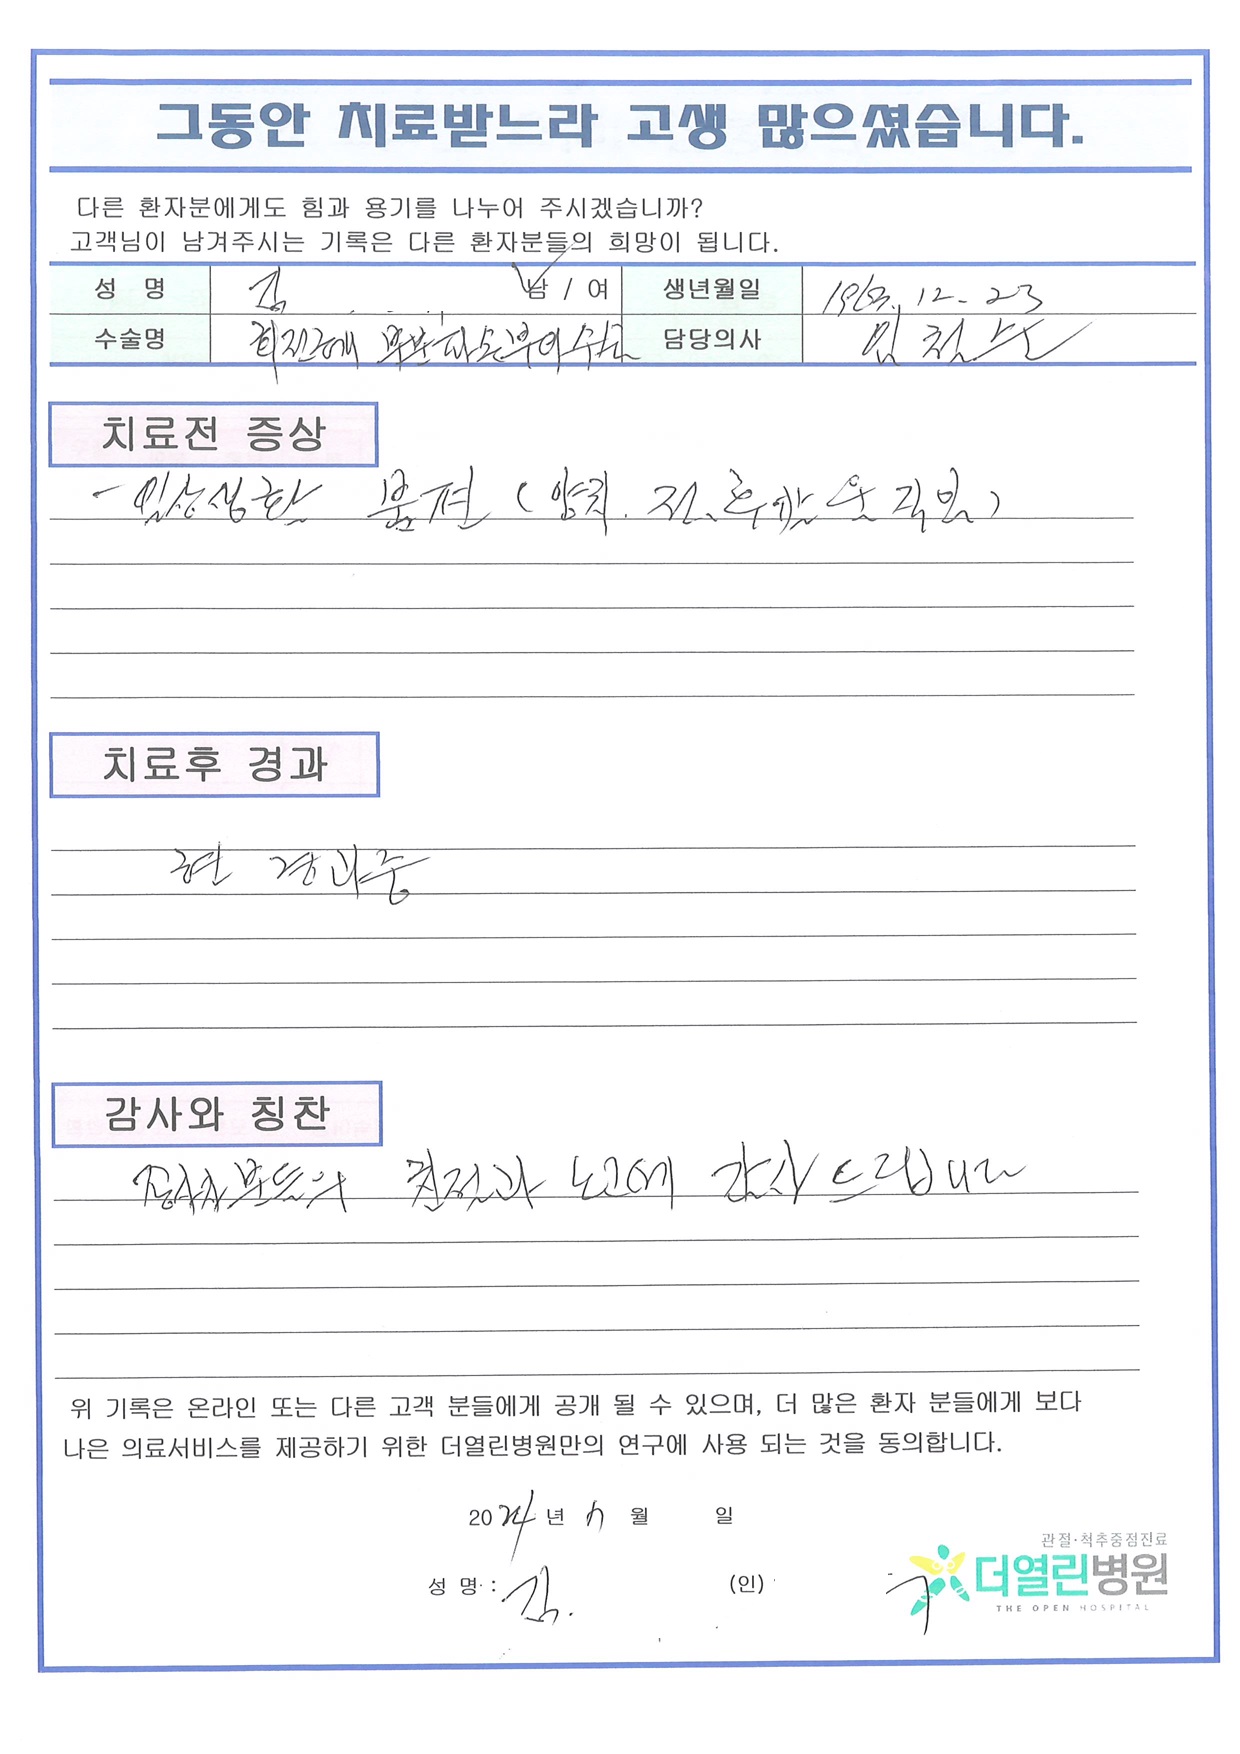 그동안 치료받느라 고생 많으셨습니다.
다른 환자분에게도 힘과 용기를 나누어 주시겠습니까?
고객님이 남겨주시는 기록은 다른 환자분들의 희망이 됩니다.
성 명 김 남 / 여 생년월일 1963. 12. 23
수술명 회전근개 부분파열 봉합수술 담당의사 임철
치료전 증상
- 일상생활 불편 (양치. 전,후방 움직임)
치료후 경과
현 경과중
감사와 칭찬
종사자분들의 친절과 노고에 감사드립니다
위 기록은 온라인 또는 다른 고객 분들에게 공개 될 수 있으며, 더 많은 환자 분들에게 보다
나은 의료서비스를 제공하기 위한 더열린병원만의 연구에 사용 되는 것을 동의합니다.
2024년 월 일
관절·척추중점진료
더열린병원
THE OPEN HOSPITAL
성 명 : 김. (인)